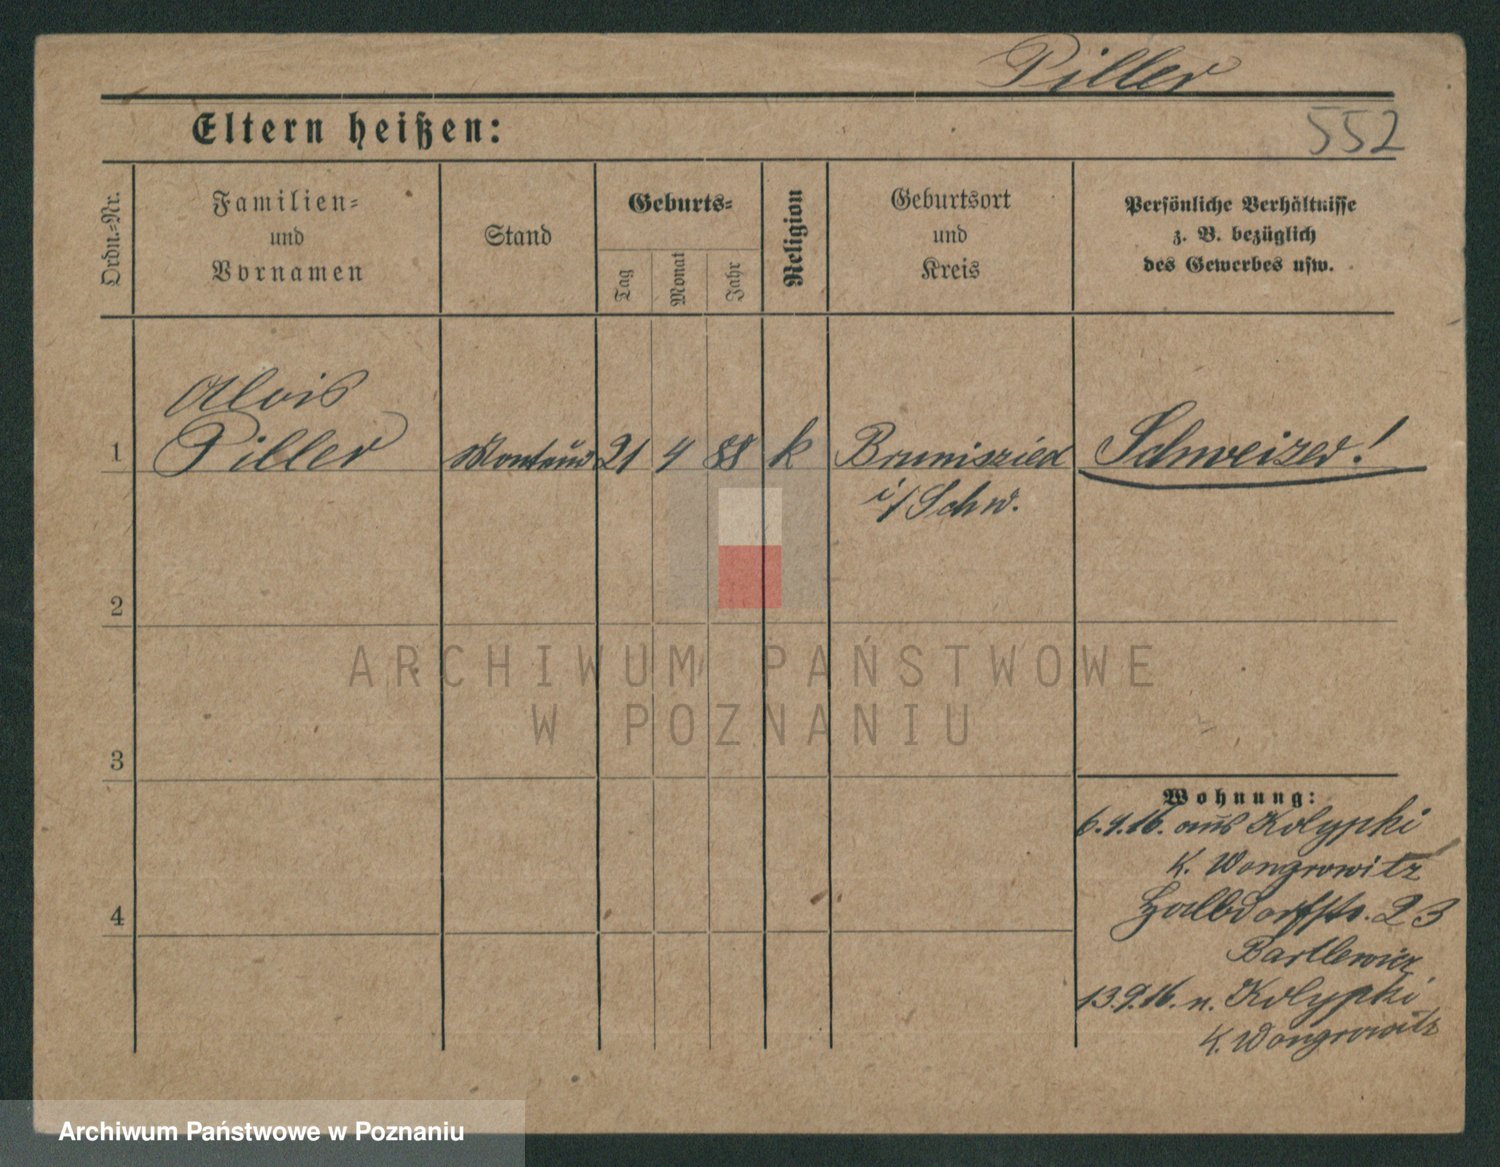 Piller
Eltern heißen:
552
Ordn.-Nr.
Familien-
und
Vornamen
Stand
Geburts-
Tag
Monat
Jahr
Religion
Geburtsort
und
Kreis
Persönliche Verhältnisse
z. B. bezüglich
des Gewerbes usw.
Alois
1 Piller 21 4 88 k Brunisried Schweizer!
i/Schw.
2
3
4
Wohnung:
6.9.16. aus Kolypki
K. Wongrowitz
Halbdorfstr. 23
Bartlewicz
13.9.16. n. Kolypki
K. Wongrowitz
ARCHIWUM PAŃSTWOWE
W POZNANIU
Archiwum Państwowe w Poznaniu